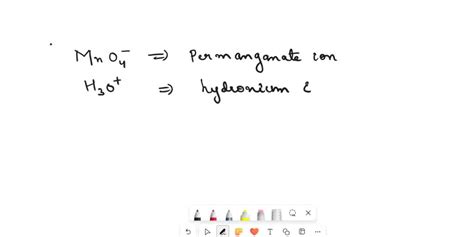 MnO₄⁻ ⇒ Permanganate ion
H₃O⁺ ⇒ hydronium i